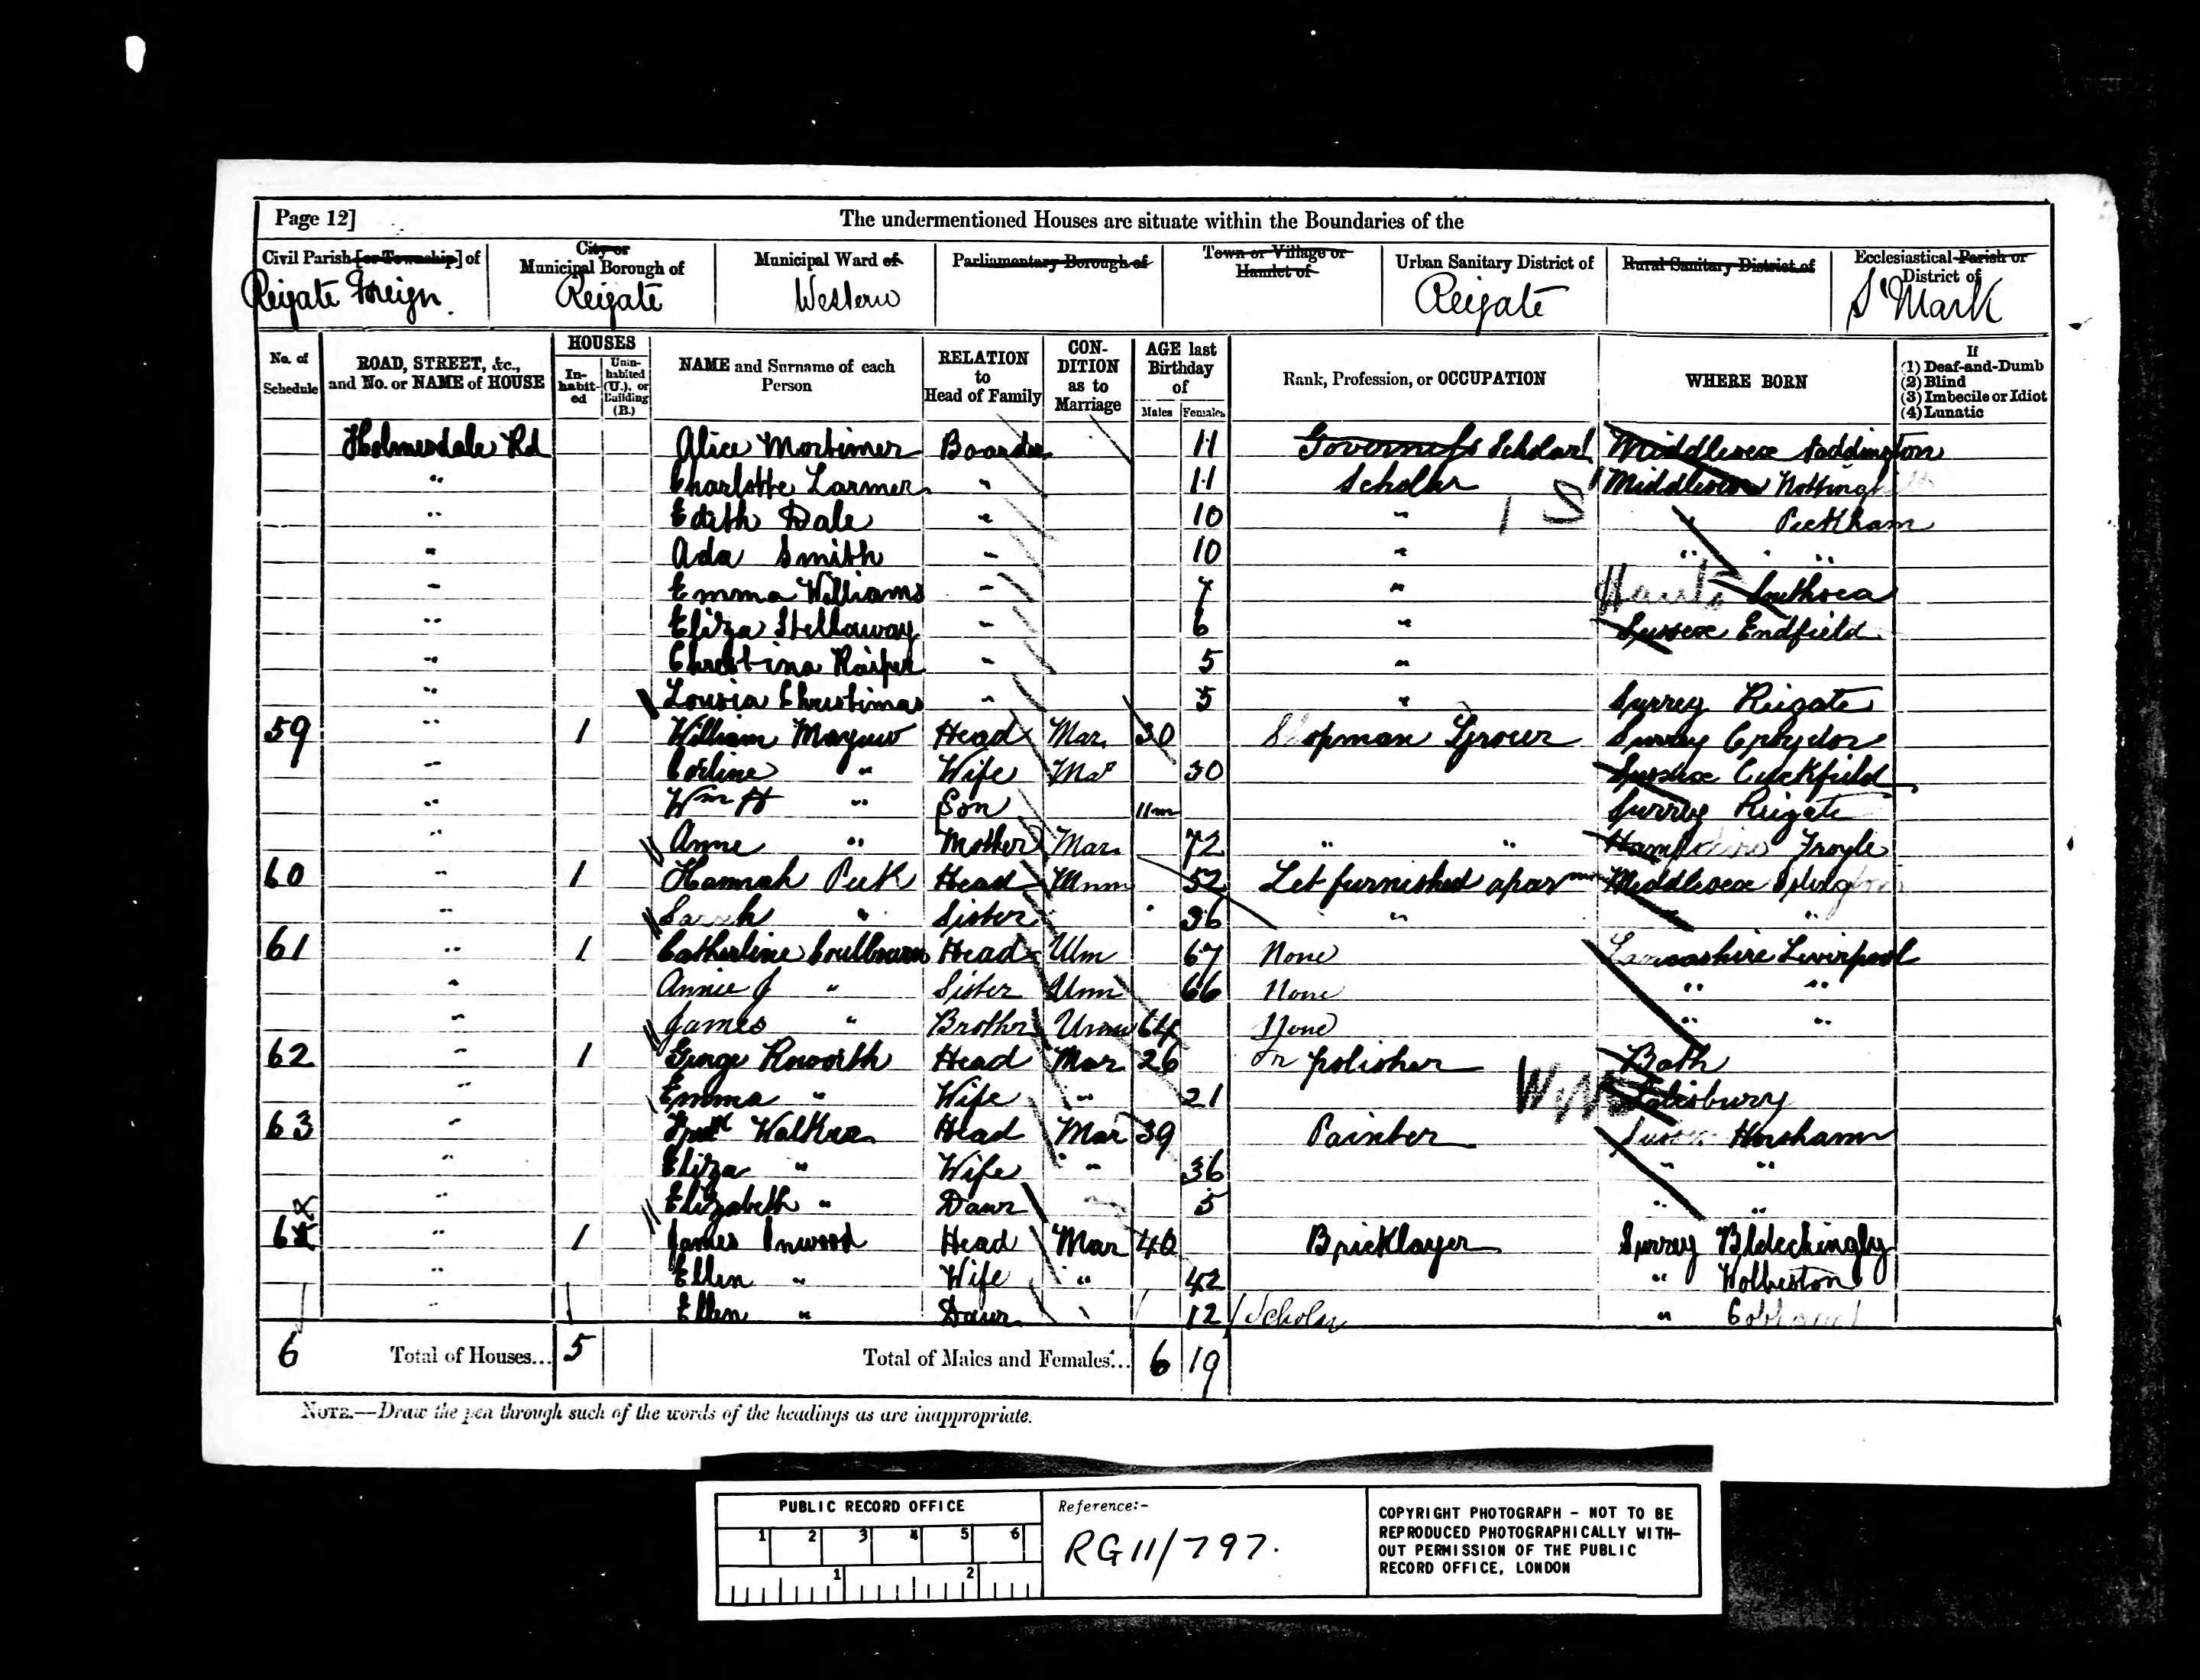 Page 12]
The undermentioned Houses are situate within the Boundaries of the
Civil Parish [or Township] of
Reigate Foreign
City or Municipal Borough of
Reigate
Municipal Ward of
Western
Parliamentary Borough of
Town or Village or Hamlet of
Urban Sanitary District of
Reigate
Rural Sanitary District of
Ecclesiastical Parish or District of
St Mark
No. of Schedule
ROAD, STREET, &c., and No. or NAME of HOUSE
HOUSES
In-habit-ed
Unin-habited (U.), or Building (B.)
NAME and Surname of each Person
RELATION to Head of Family
CON-DITION as to Marriage
AGE last Birthday of
Males
Females
Rank, Profession, or OCCUPATION
WHERE BORN
If
(1) Deaf-and-Dumb
(2) Blind
(3) Imbecile or Idiot
(4) Lunatic
Holmesdale Rd Alice Mortimer Boarder 11 Governess Scholar Middlesex Paddington
" Charlotte Larmer " 11 Scholar Middlesex
" Edith Dale " 10 " " Peckham
" Ada Smith " 10 " " " "
" Emma Williams " 7 " Hants Southsea
" Eliza Stellaway " 6 " Sussex Endfield
" Christina " 5 "
" Lousia Christimas " 5 " Surrey Reigate
59 " 1 William Head Mar 30 Shopman Grocer Surrey Croydon
" " Wife Mar 30 Sussex Cuckfield
" Wm H " Son 11m Surrey Reigate
" Anne " Mother Mar 72 " " Froyle
60 " 1 Hannah Peek Head 52 Let furnished Middlesex
" Sarah " Sister 36 " "
61 " 1 Catherline Head Um 67 None Lancashire Liverpool
" Annie J " Sister Unm 66 None " "
" James " Brother 64 None " "
62 " 1 George Head Mar 26 polisher Bath
" Emma " Wife " 21 Salisbury
63 " Walker Head Mar 39 Painter Sussex Horsham
" Eliza " Wife " 36 " "
" Elizabeth " Daur 5 " "
" 1 James Inwood Head Mar 40 Bricklayer Surrey Bldechingly
" Ellen " Wife " 42 "
" Ellen " Daur 12 Scholar "
6 Total of Houses... 5 Total of Males and Females... 6 19
NOTE.—Draw the pen through such of the words of the headings as are inappropriate.
PUBLIC RECORD OFFICE
1 2 3 4 5 6
1 2
Reference:-
RG11/797.
COPYRIGHT PHOTOGRAPH - NOT TO BE
REPRODUCED PHOTOGRAPHICALLY WITH-
OUT PERMISSION OF THE PUBLIC
RECORD OFFICE, LONDON